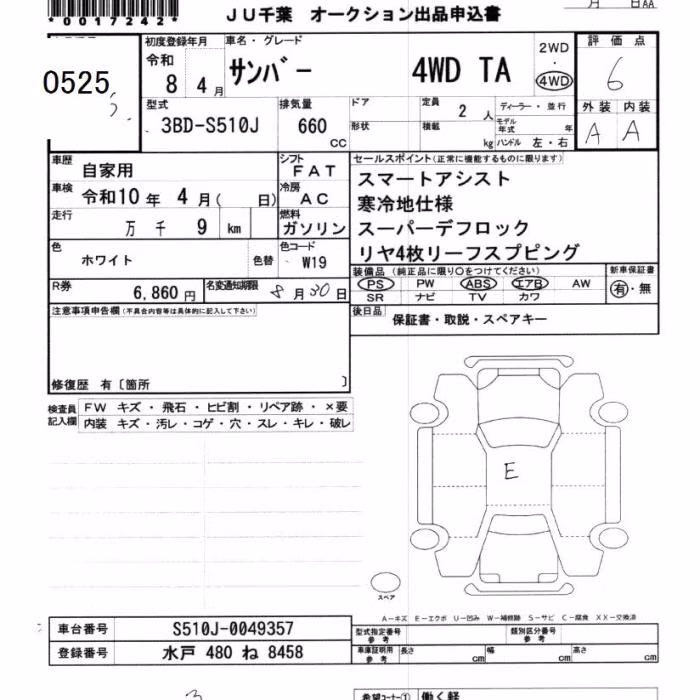 *0017242*
JU千葉 オークション出品申込書
月 日AA
0525
初度登録年月
令和
8年 4月
車名・グレード
サンバー 4WD TA
2WD
・
4WD
評価点
6
外装 内装
A A
型式
3BD-S510J
排気量
660
CC
ドア
形状
定員 2 人
積載 kg
ディーラー・並行
モデル年式 年
ハンドル 左・右
車歴 自家用
車検 令和10年 4月( 日)
走行 万 千 9 km
シフト
FAT
冷房
AC
燃料
ガソリン
色
ホワイト
色替
色コード
W19
R券
6,860円
名変通知期限 8月30日
セールスポイント(正常に機能するものに限ります)
スマートアシスト
寒冷地仕様
スーパーデフロック
リヤ4枚リーフスプピング
装備品(純正品に限り○をつけてください)
PS PW ABS エアB AW
SR ナビ TV カワ
新車保証書
有・無
後日品 保証書・取説・スペアキー
注意事項申告欄(不具合内容等は具体的に記入して下さい)
修復歴 有〔箇所 〕
検査員記入欄
FW キズ・飛石・ヒビ割・リペア跡・×要
内装 キズ・汚レ・コゲ・穴・スレ・キレ・破レ
E
スペア
A−キズ E−エクボ U−凹み W−補修跡 S−サビ C−腐食 XX−交換済
車台番号 S510J-0049357
登録番号 水戸 480 ね 8458
型式指定番号参考
類別区分番号参考
車庫証明用参考 長さ cm 幅 cm 高さ cm
3
希望コーナー① 働く軽